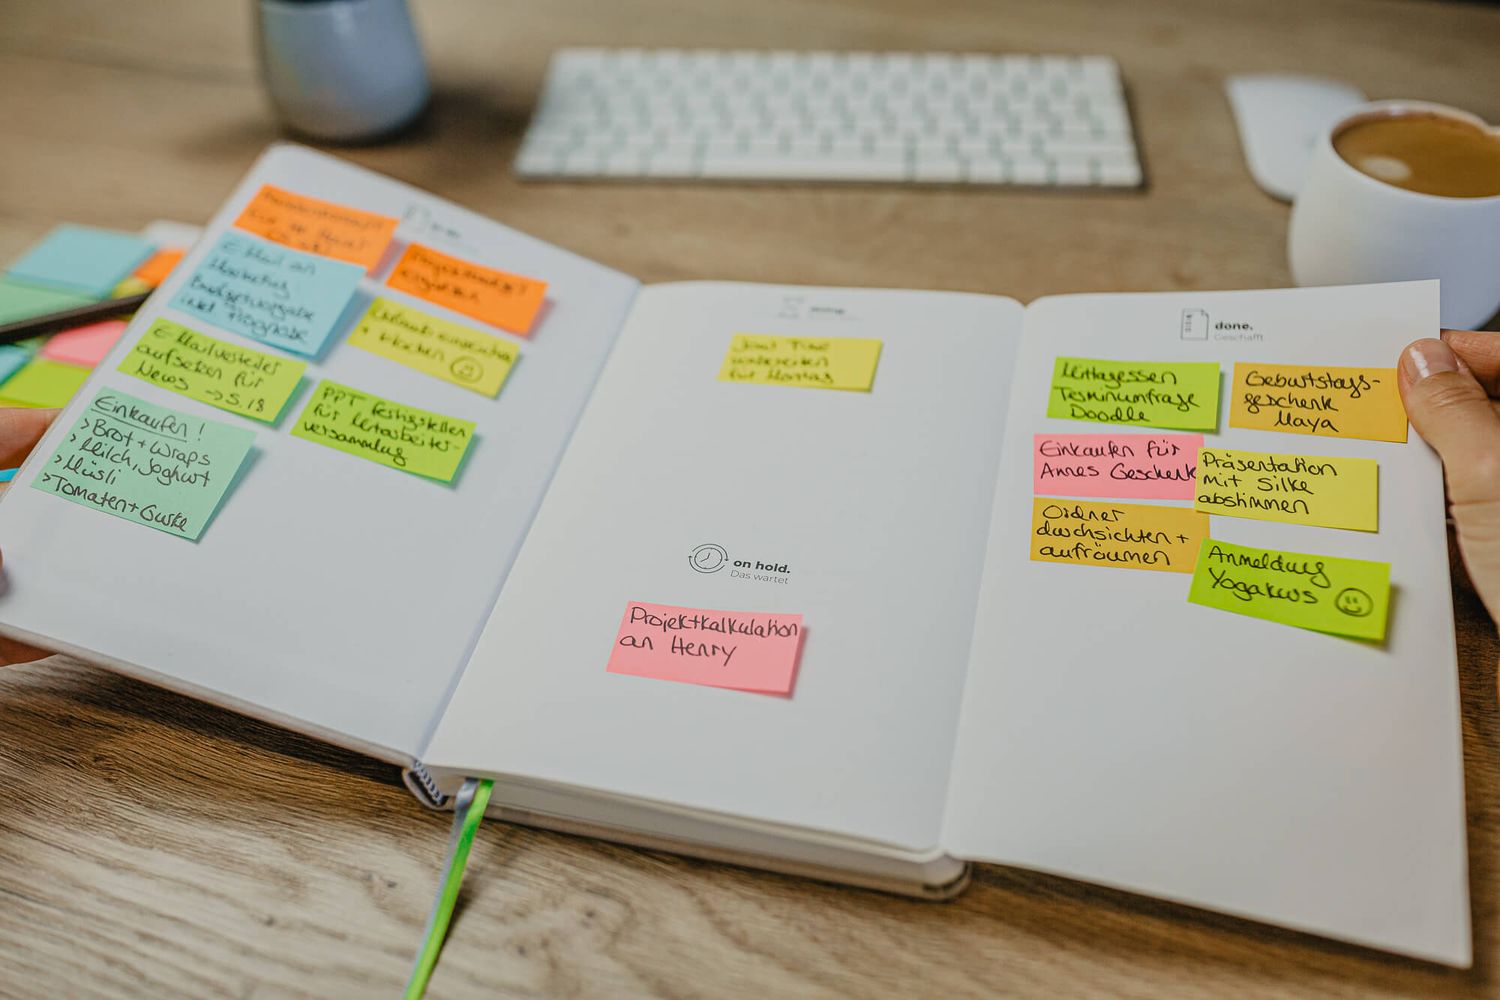 E-Mail an
Marketing
Budgetvorgabe
inkl Prognose
E-Mailverteiler
aufsetzen für
News → S.18
Einkaufen!
>Brot+Wraps
>Milch, Joghurt
>Müsli
>Tomaten+Gurke
PPT fertigstellen
für Mitarbeiter-
versammlung
doing.
für Montag
on hold.
Das wartet
Projektkalkulation
an Henry
done.
Geschafft
Mittagessen
Terminumfrage
Doodle
Geburtstags-
geschenk
Maya
Einkaufen für
Annes Geschenk
Präsentation
mit Silke
abstimmen
Ordner
durchsichten +
aufräumen
Anmeldung
Yogakurs